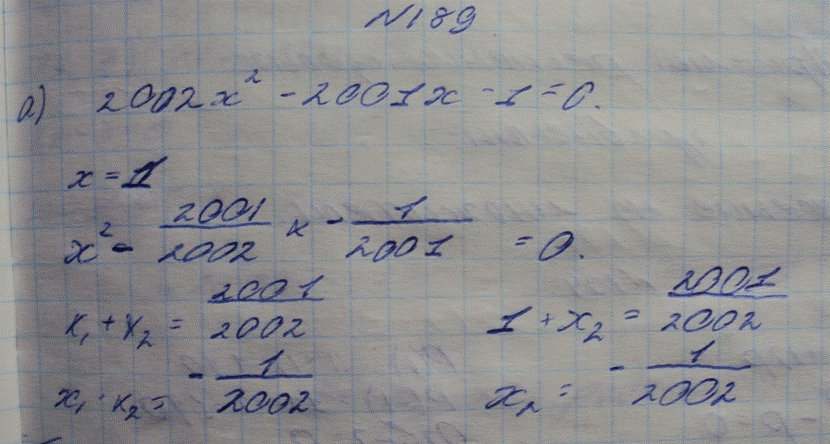 N189
а) 2002x² - 2001x - 1 = 0.
x = 1
x² - 2001/2002 x - 1/2001 = 0.
x₁ + x₂ = 2001/2002    1 + x₂ = 2001/2002
x₁ · x₂ = - 1/2002    x₂ = - 1/2002